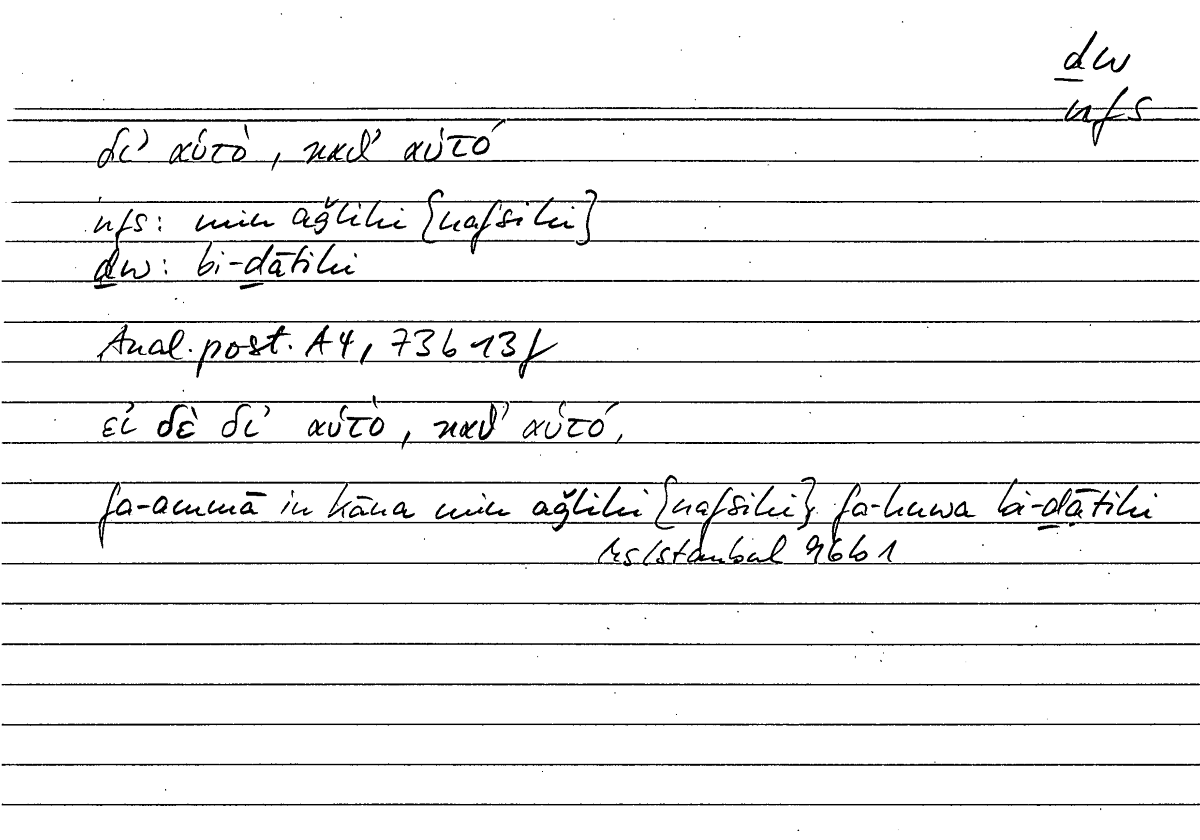 ḏw
nfs
δι’ αὑτὸ, καθ’ αὑτό
nfs: min aǧlihi {nafsihi}
ḏw: bi-ḏātihi
Anal. post. A4, 73b13f
εἰ δὲ δι’ αὑτὸ, καθ’ αὑτό.
fa-ammā in kāna min aǧlihi {nafsihi} fa-huwa bi-ḏātihi
Istanbul 96b1